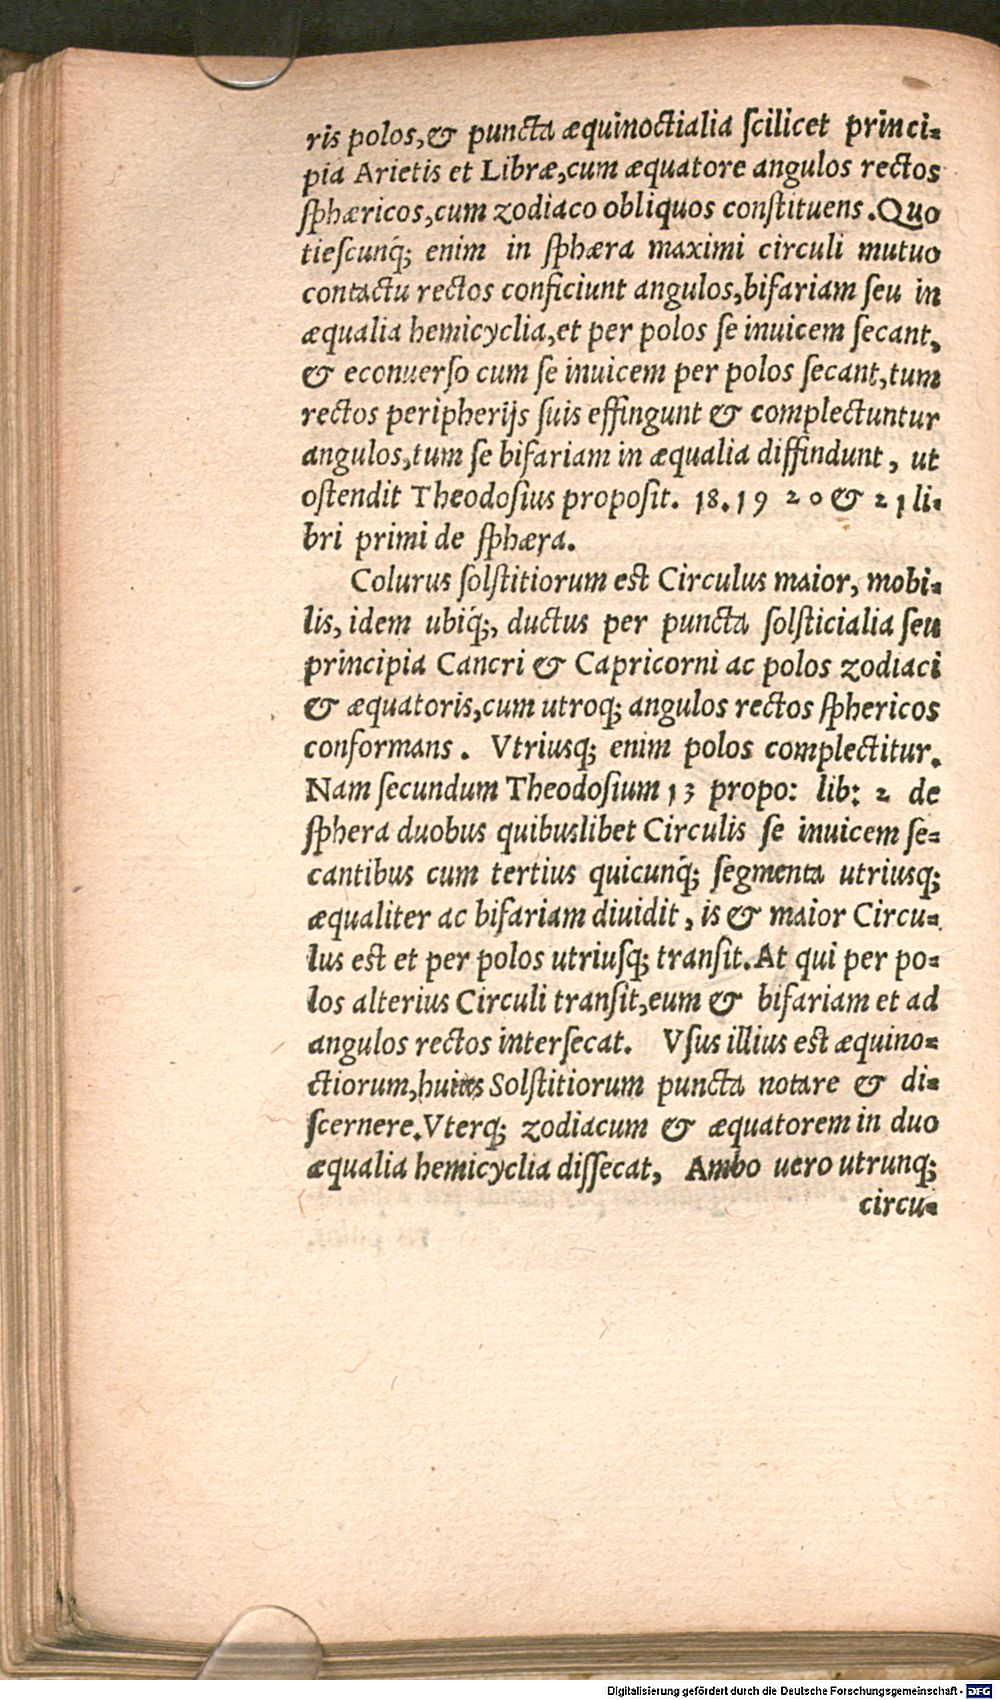 ris polos,& puncta æquinoctialia ſcilicet princi-
pia Arietis et Libræ,cum æquatore angulos rectos
ſphæricos,cum zodiaco obliquos conſtituens.Quo
tieſcunq́; enim in ſphæra maximi circuli mutuo
contactu rectos conficiunt angulos,bifariam ſeu in
æqualia hemicyclia,et per polos ſe inuicem ſecant,
& econuerſo cum ſe inuicem per polos ſecant,tum
rectos peripherijs ſuis effingunt & complectuntur
angulos,tum ſe bifariam in æqualia diffindunt, ut
oſtendit Theodoſius propoſit. 18.19 20 & 21 li-
bri primi de ſphæra.
Colurus ſolſtitiorum est Circulus maior, mobi-
lis, idem ubiq́;, ductus per puncta ſolſticialia ſeu
principia Cancri & Capricorni ac polos zodiaci
& æquatoris,cum utroq; angulos rectos ſphericos
conformans. Vtriusq; enim polos complectitur.
Nam ſecundum Theodoſium 13 propo: lib: 2 de
ſphera duobus quibuslibet Circulis ſe inuicem ſe-
cantibus cum tertius quicunq́; ſegmenta utriusq;
æqualiter ac bifariam diuidit, is & maior Circu-
lus est et per polos utriuſq; tranſit.At qui per po-
los alterius Circuli tranſit,eum & bifariam et ad
angulos rectos interſecat. Vſus illius est æquino-
ctiorum,huius Solſtitiorum puncta notare & di-
ſcernere.Vterq; zodiacum & æquatorem in duo
æqualia hemicyclia diſſecat, Ambo uero utrunq;
circu-
Digitalisierung gefördert durch die Deutsche Forschungsgemeinschaft - DFG